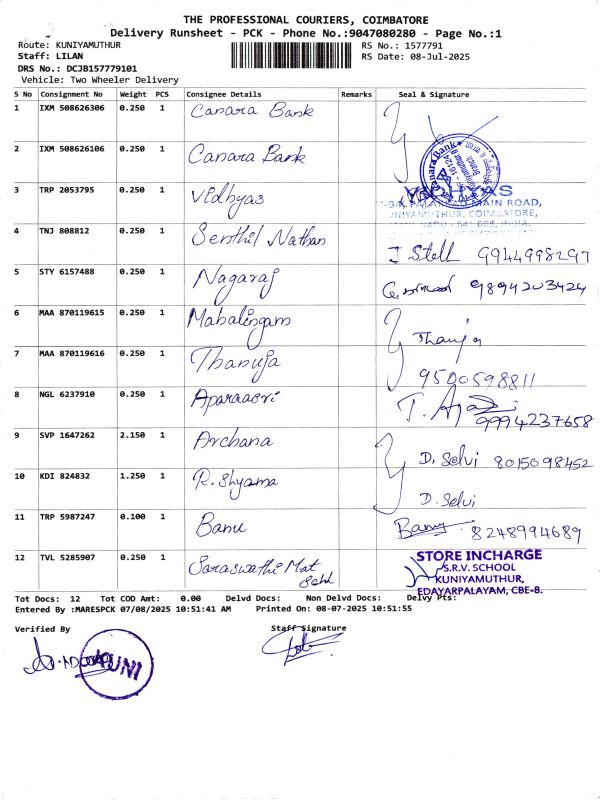 THE PROFESSIONAL COURIERS, COIMBATORE
Delivery Runsheet - PCK - Phone No.:9047080280 - Page No.:1
Route: KUNIYAMUTHUR RS No.: 1577791
Staff: LILAN RS Date: 08-Jul-2025
DRS No.: DCJB157779101
Vehicle: Two Wheeler Delivery
S No Consignment No Weight PCS Consignee Details Remarks Seal & Signature
1 IXM 508626306 0.250 1 Canara Bank
2 IXM 508626106 0.250 1 Canara Bank
3 TRP 2053795 0.250 1 Vidhyas
MAIN ROAD,
COIMBATORE,
4 TNJ 808812 0.250 1 Senthil Nathan 9944998297
5 STY 6157488 0.250 1 Nagaraj 9894203424
6 MAA 870119615 0.250 1 Mahalingam
7 MAA 870119616 0.250 1 Thanuja 9500598811
8 NGL 6237910 0.250 1 Aparaasri 9994237658
9 SVP 1647262 2.150 1 Archana D. Selvi 8015098452
10 KDI 824832 1.250 1 R. Shyama D. Selvi
11 TRP 5987247 0.100 1 Banu Banu 8248994689
12 TVL 5285907 0.250 1 Saraswathi Mat Schl
STORE INCHARGE
S.R.V. SCHOOL
KUNIYAMUTHUR,
EDAYARPALAYAM, CBE-8.
Tot Docs: 12 Tot COD Amt: 0.00 Delvd Docs: Non Delvd Docs: Delvy Pts:
Entered By :MARESPCK 07/08/2025 10:51:41 AM Printed On: 08-07-2025 10:51:55
Verified By Staff Signature
KUNI